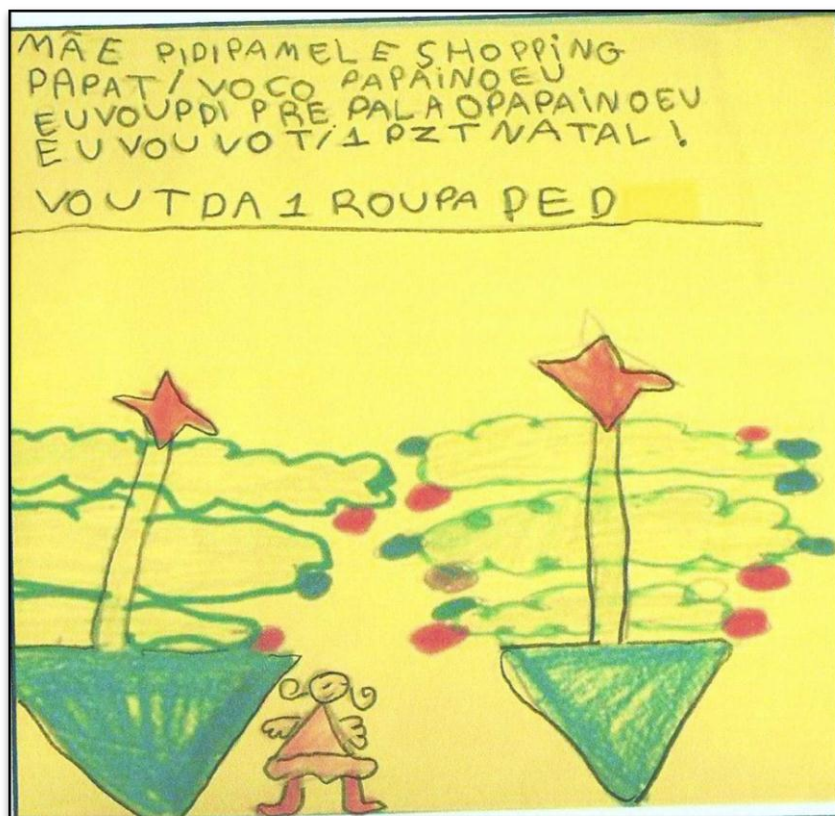 MÃE PIDIPAMEL E SHOPPING
PAPAT/VOCO PAPAINOEU
EUVOUPDI PRE PALAOPAPAINOEU
EU VOU VOT/1 PZT NATAL!
VOUTDA 1 ROUPA DED